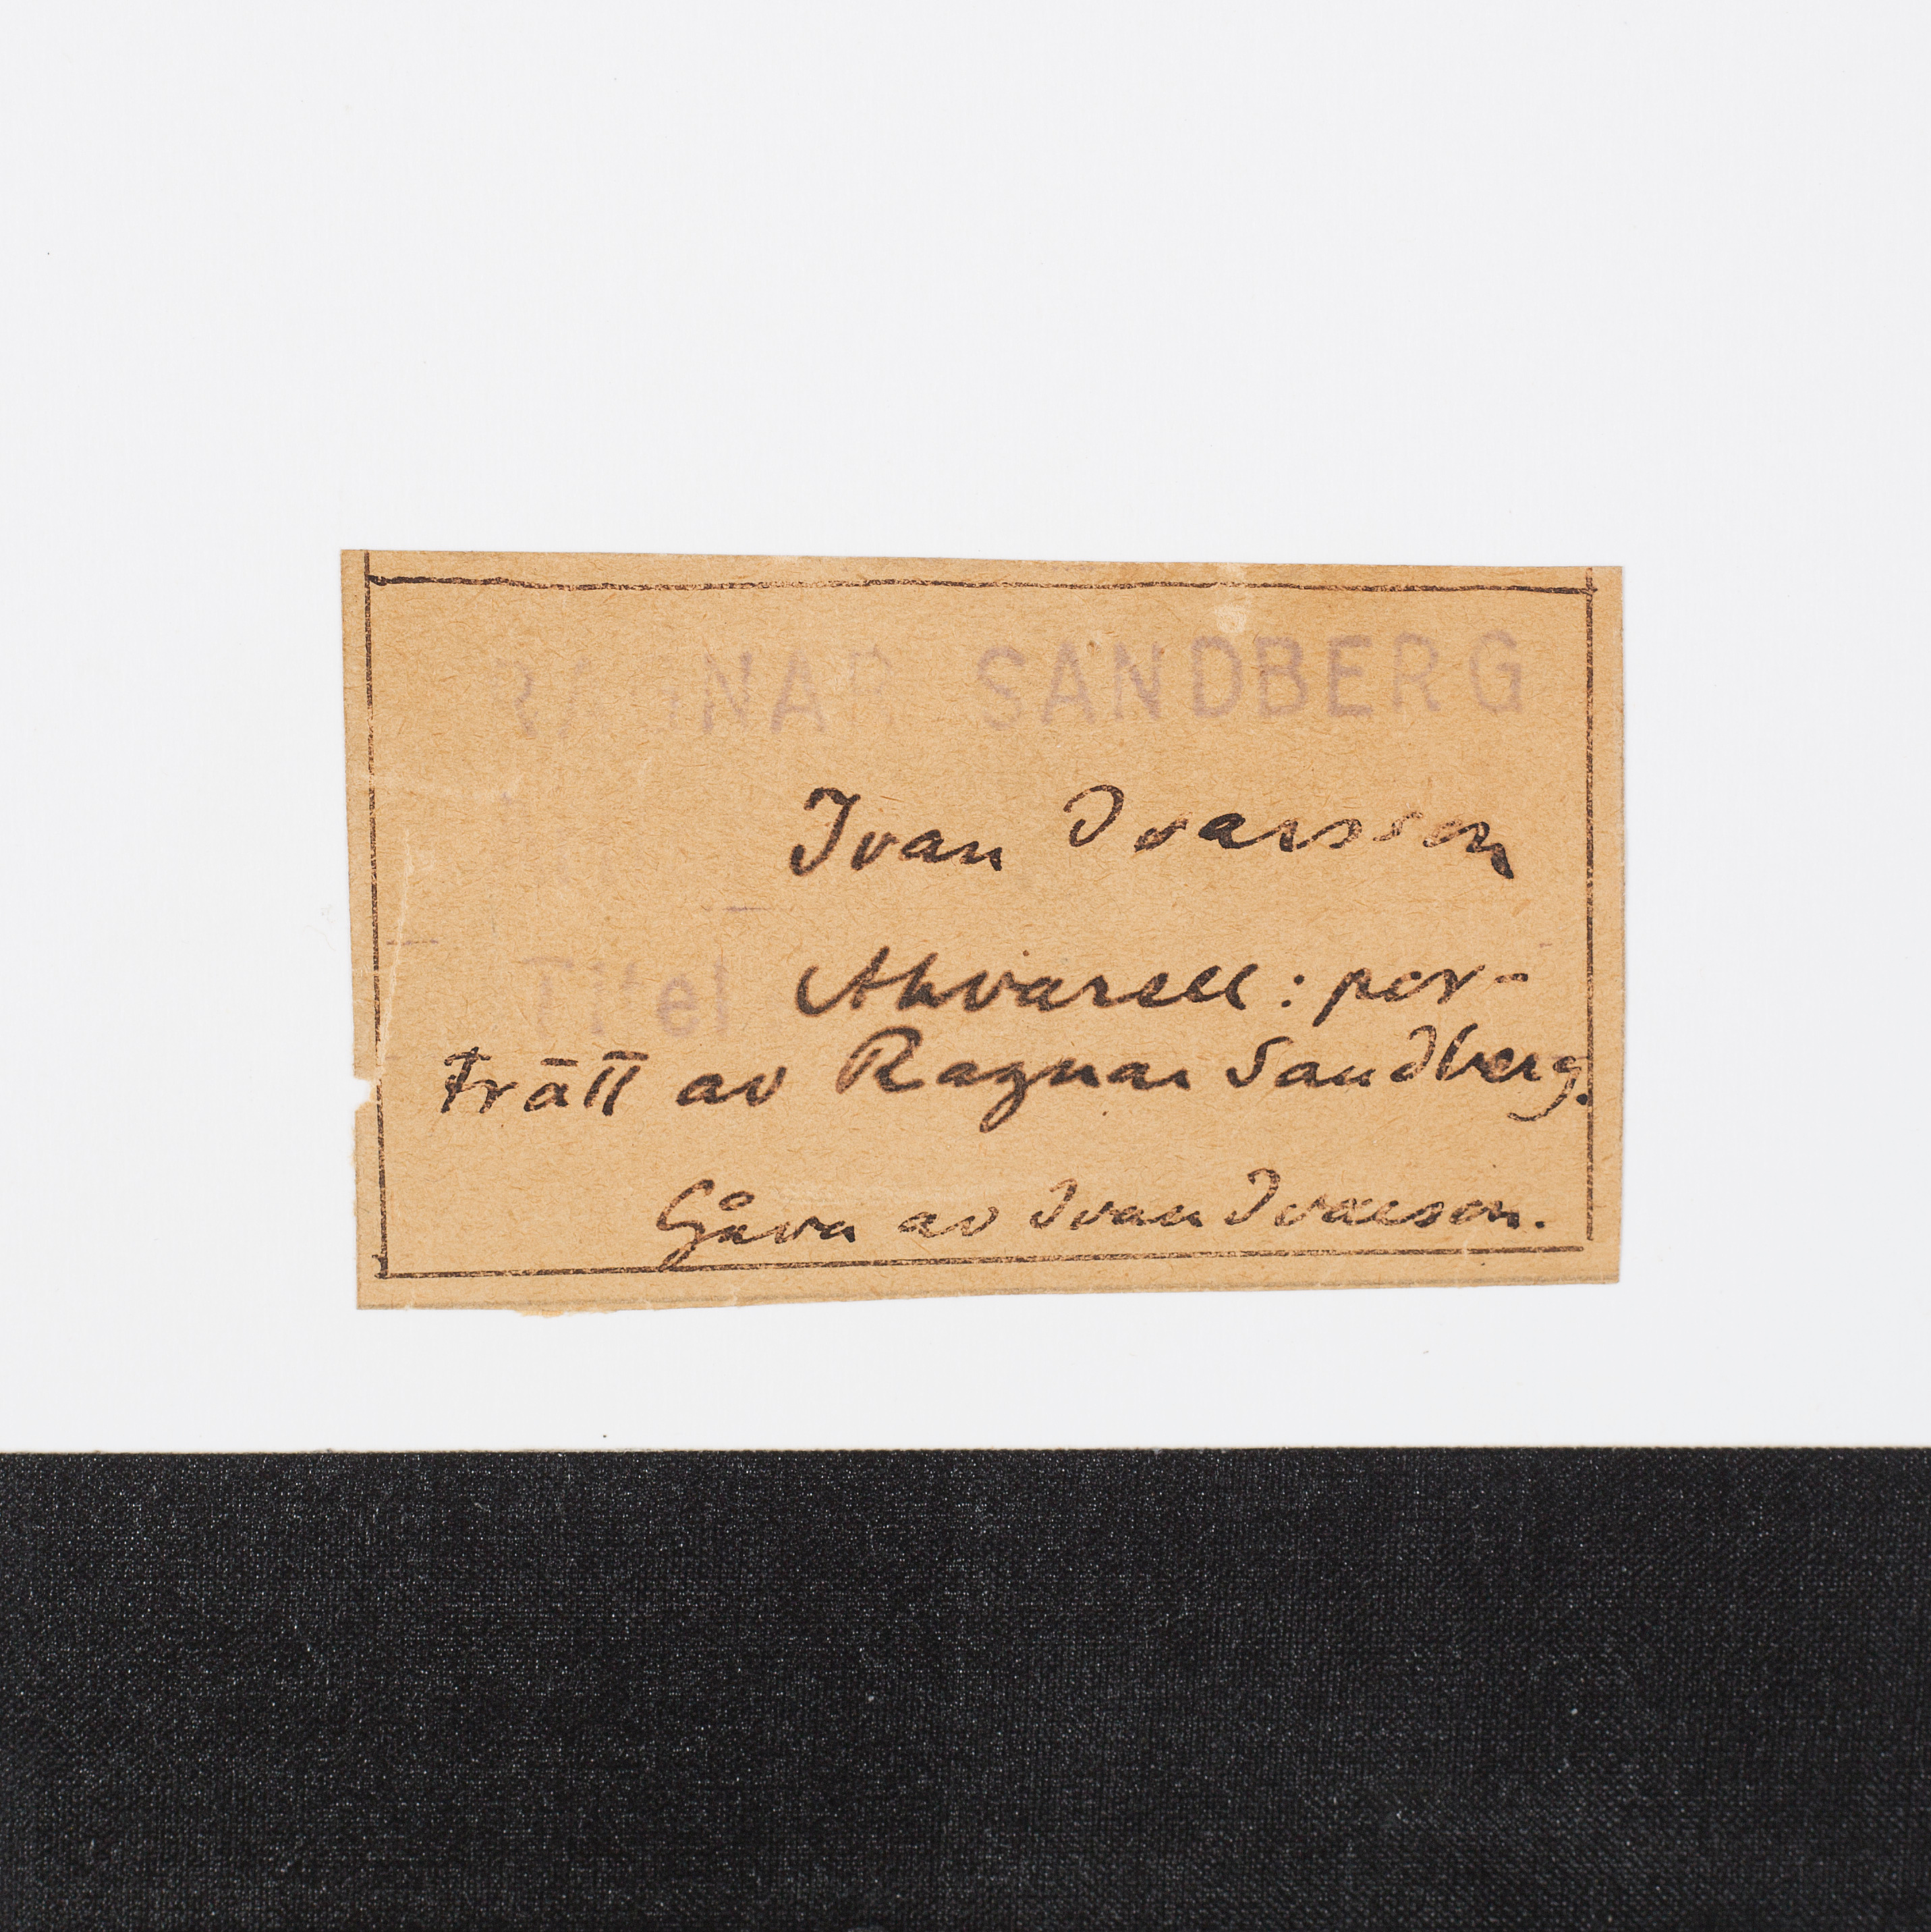 RAGNAR SANDBERG
Ivan Ivarsson
Titel Akvarell: por-
trätt av Ragnar Sandberg.
Gåva av Ivan Ivarson.